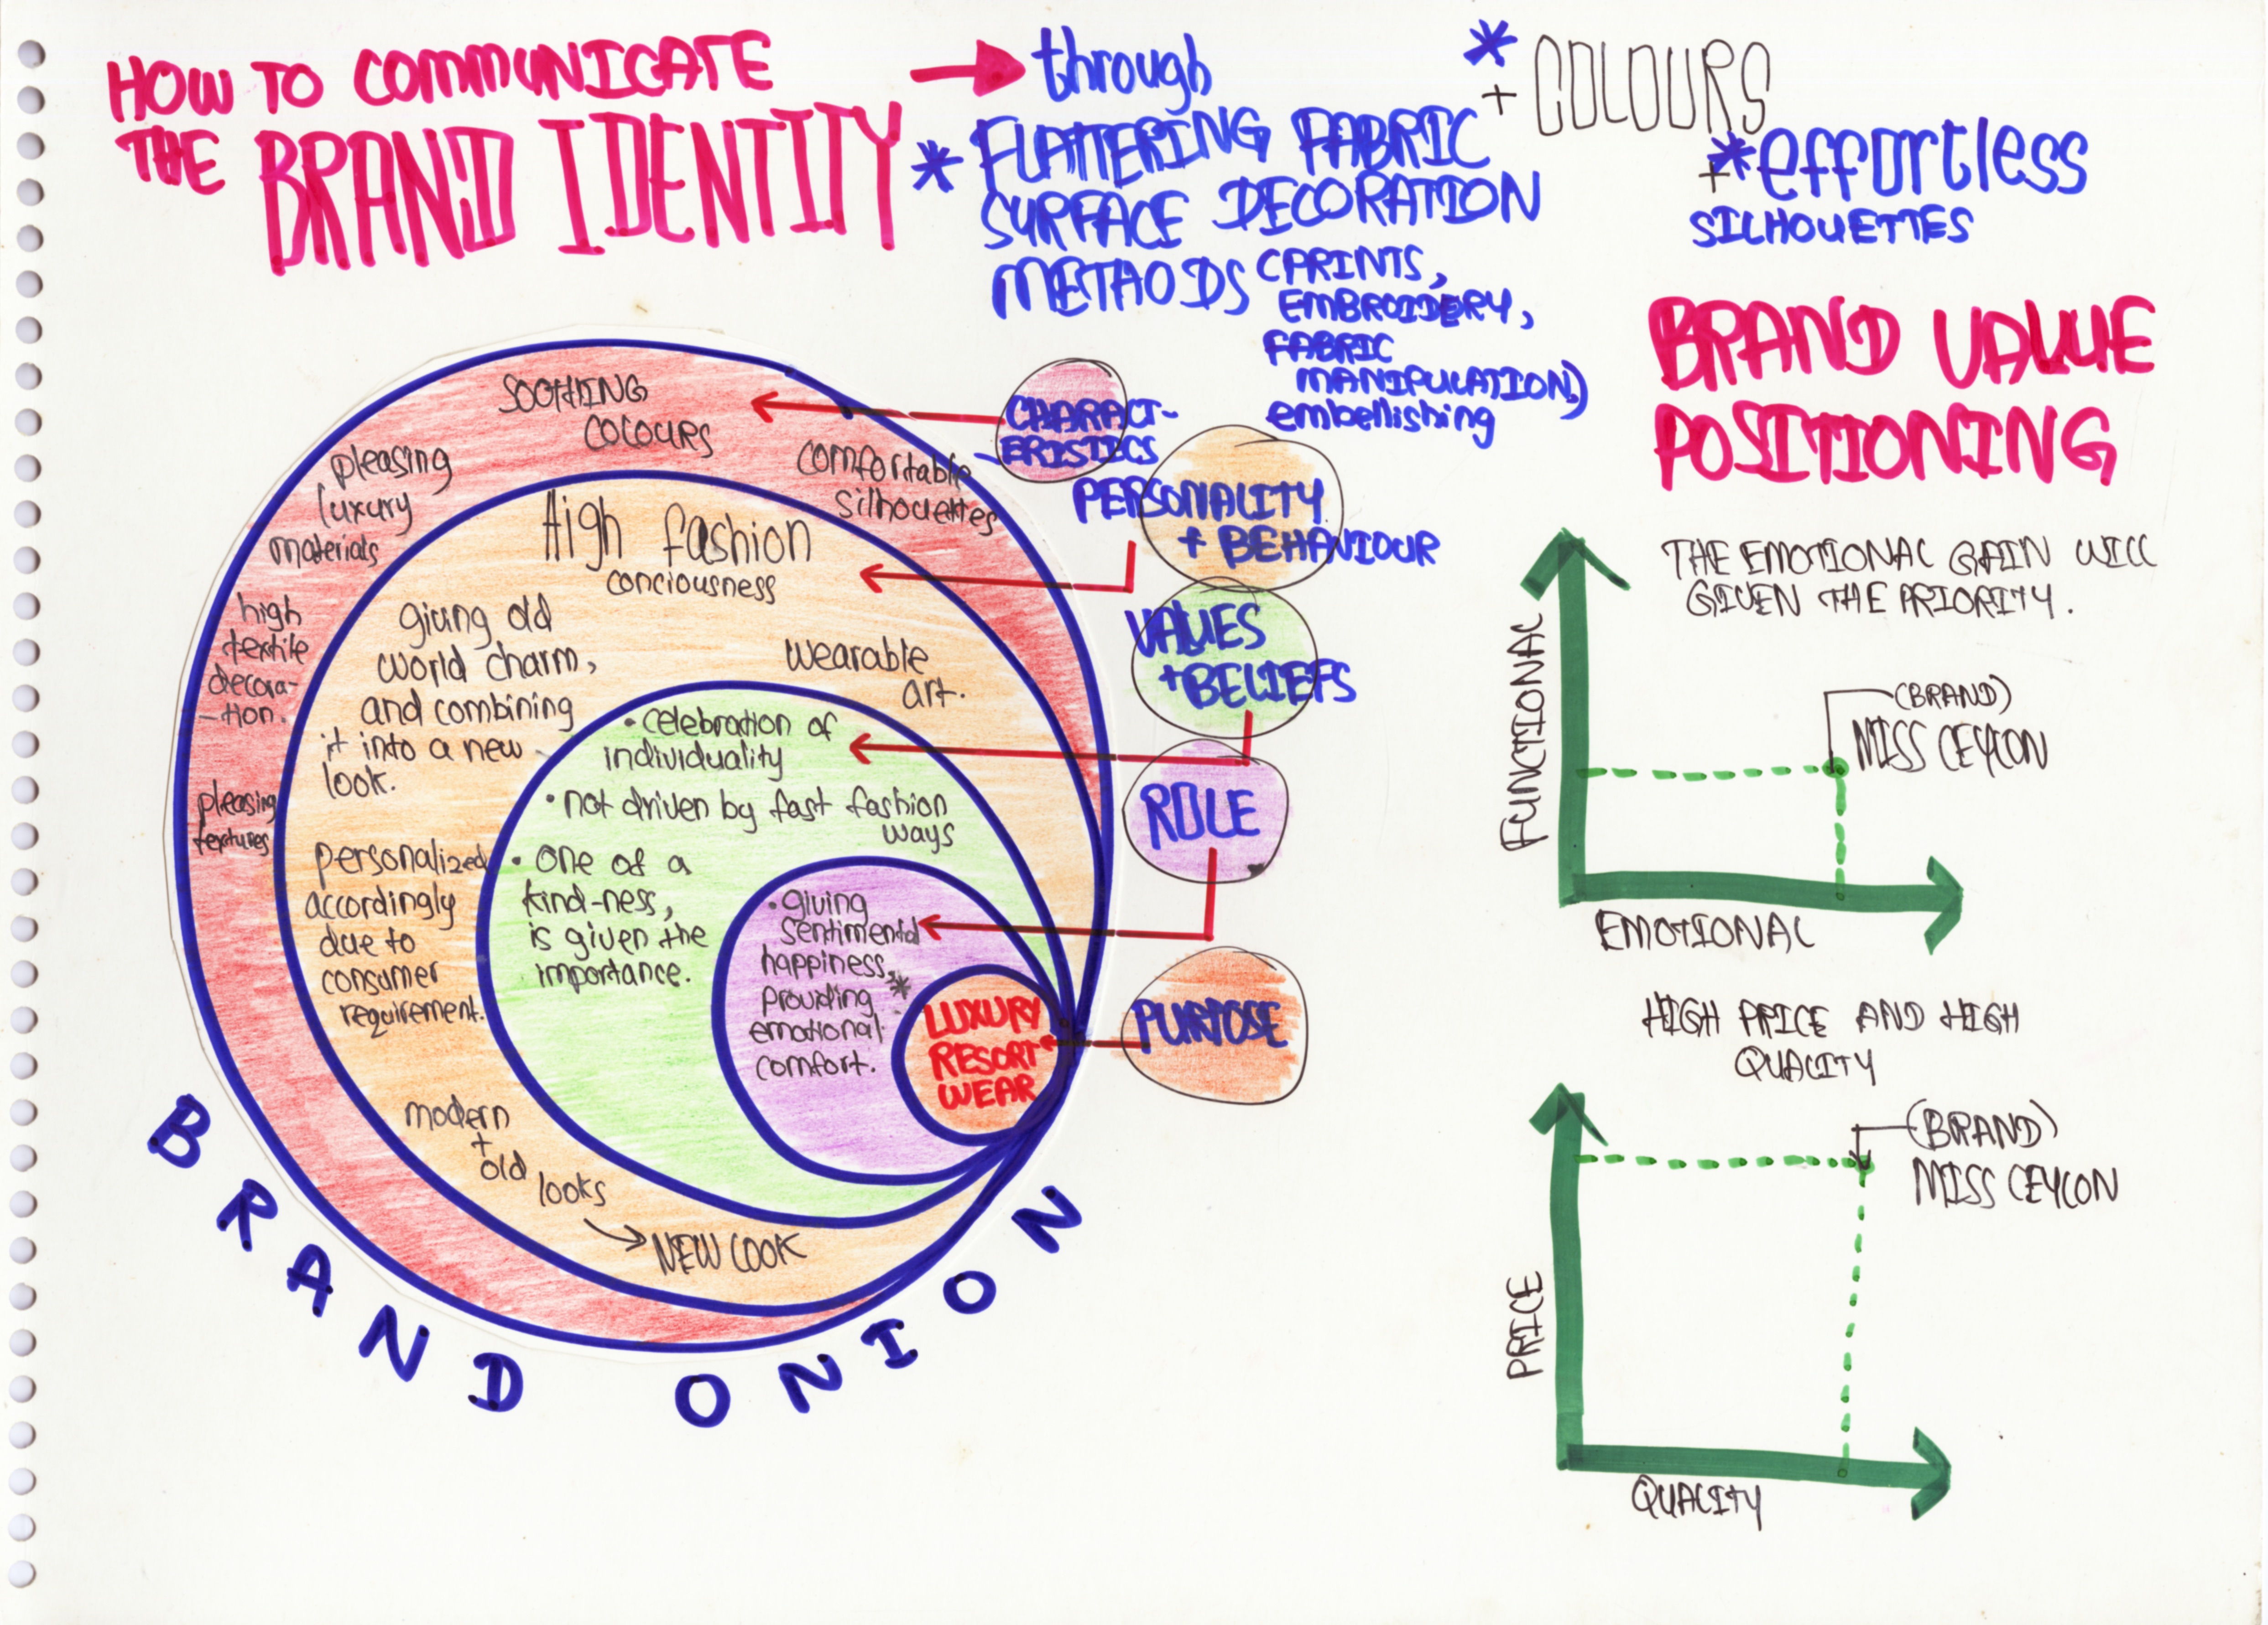 HOW TO COMMUNICATE
THE BRAND IDENTITY
through
* FLATTERING FABRIC
SURFACE DECORATION
METHODS (PRINTS,
EMBROIDERY,
FABRIC
MANIPULATION,)
embellishing
*
+ COLOURS
+ * effortless
SILHOUETTES
SOOTHING
COLOURS
pleasing
luxury
materials
comfortable
silhouettes
high
textile
decora-
-tion.
pleasing
textures
High fashion
conciousness
giving old
world charm,
and combining
it into a new
look.
wearable
art.
personalized
accordingly
due to
consumer
requirement.
modern
+
old
looks
NEW LOOK
• celebration of
individuality
• not driven by fast fashion
ways
• one of a
kind-ness,
is given the
importance.
• giving
sentimental
happiness, *
providing
emotional
comfort.
LUXURY
RESORT
WEAR
CHARACT-
-ERISTICS
PERSONALITY
+ BEHAVIOUR
VALUES
+BELIEFS
ROLE
PURPOSE
BRAND ONION
BRAND VALUE
POSITIONING
THE EMOTIONAL GAIN WILL
GIVEN THE PRIORITY.
FUNCTIONAL
(BRAND)
MISS CEYLON
EMOTIONAL
HIGH PRICE AND HIGH
QUALITY
PRICE
(BRAND)
MISS CEYLON
QUALITY